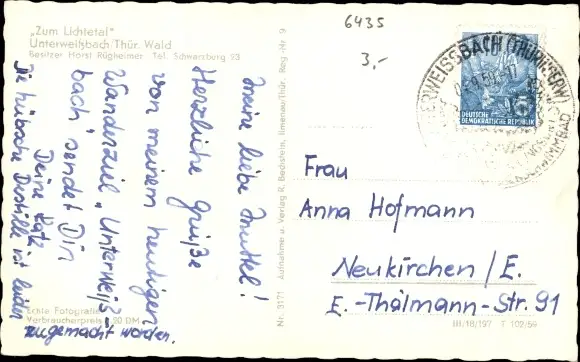 „Zum Lichtetal"
Unterweißbach/Thür. Wald
Besitzer Horst Rügheimer Tel. Schwarzburg 23
6435
3,-
Meine liebe Muttel!
Herzliche Grüße
von meinem heutigen
Wanderziel „Unterweiß-
bach" sendet Din
Deine Kate
Die hübsche Dorfstille ist leider
zugemacht worden.
Echte Fotografie
Verbraucherpreis -.20 DM
Nr. 3171 Aufnahme u. Verlag R. Bechstein, Ilmenau/Thür. Reg.-Nr. 9
WEISSBACH (THÜRINGERW)
DEUTSCHE
DEMOKRATISCHE REPUBLIK
5
SCHWIMMBAD
Frau
Anna Hofmann
Neukirchen / E.
E.-Thälmann-Str. 91
III/18/197 T 102/59